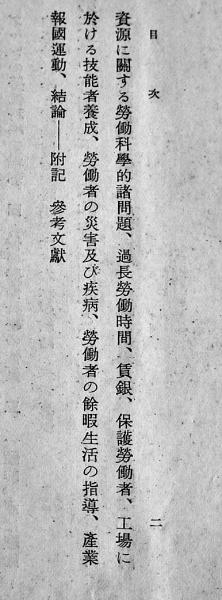 目次 二
資源に關する勞働科學的諸問題、過長勞働時間、賃銀、保護勞働者、工場に
於ける技能者養成、勞働者の災害及び疾病、勞働者の餘暇生活の指導、產業
報國運動、結論――附記 參考文獻